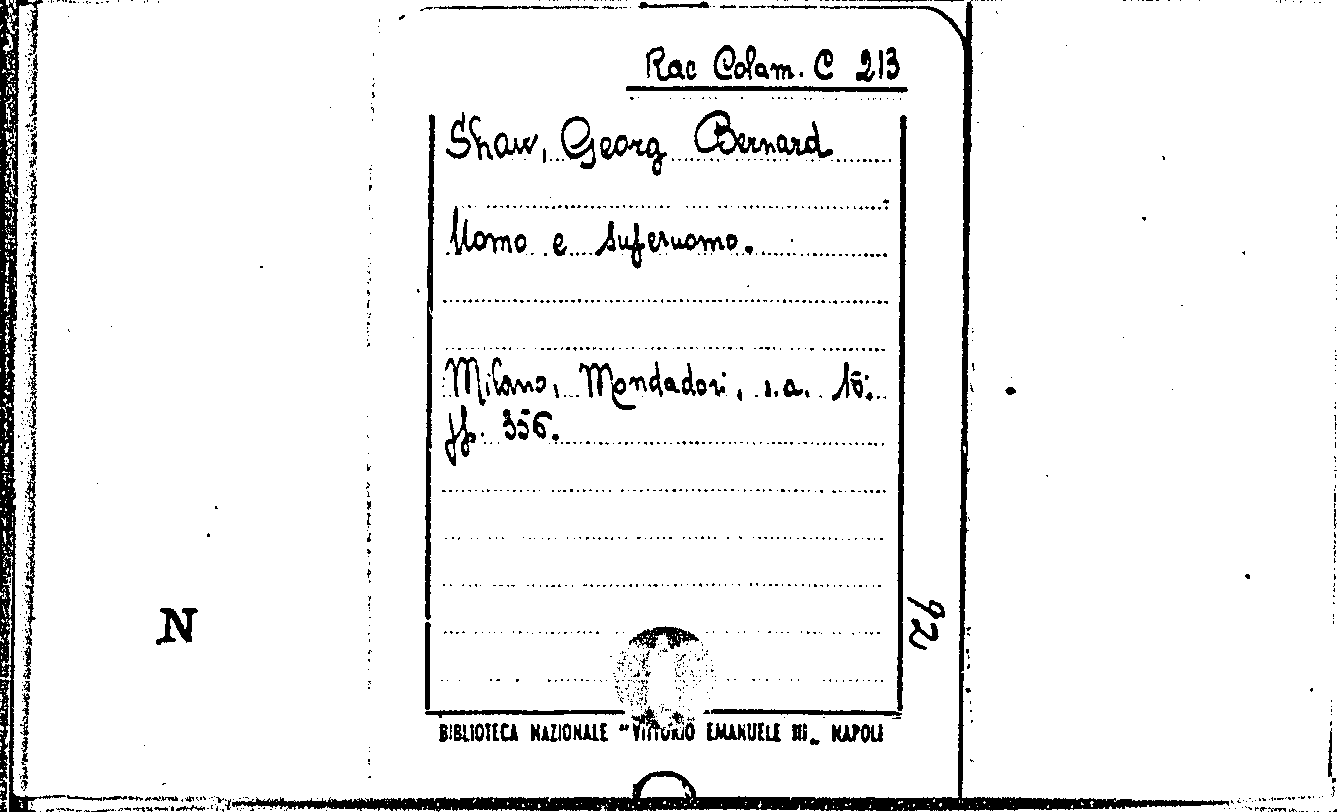 Rac Colam. C 213
Shaw, Georg Bernard
Uomo e superuomo.
Milano, Mondadori, s.a. 16°.
pp. 356.
92
N
BIBLIOTECA NAZIONALE "VITTORIO EMANUELE III„ NAPOLI